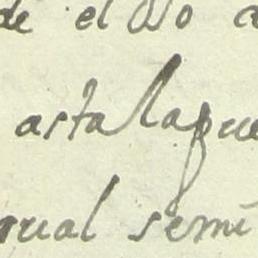 de el Oso a
asta la que
qual semi